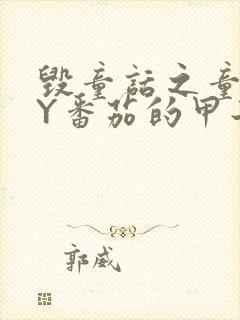 毁童话之童
Y番茄的甲
郭威